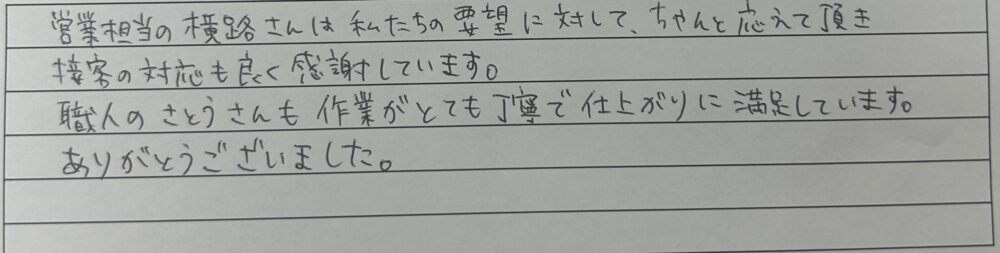 営業担当の横路さんは私たちの要望に対して、ちゃんと応えて頂き
接客の対応も良く感謝しています。
職人のさとうさんも作業がとても丁寧で仕上がりに満足しています。
ありがとうございました。